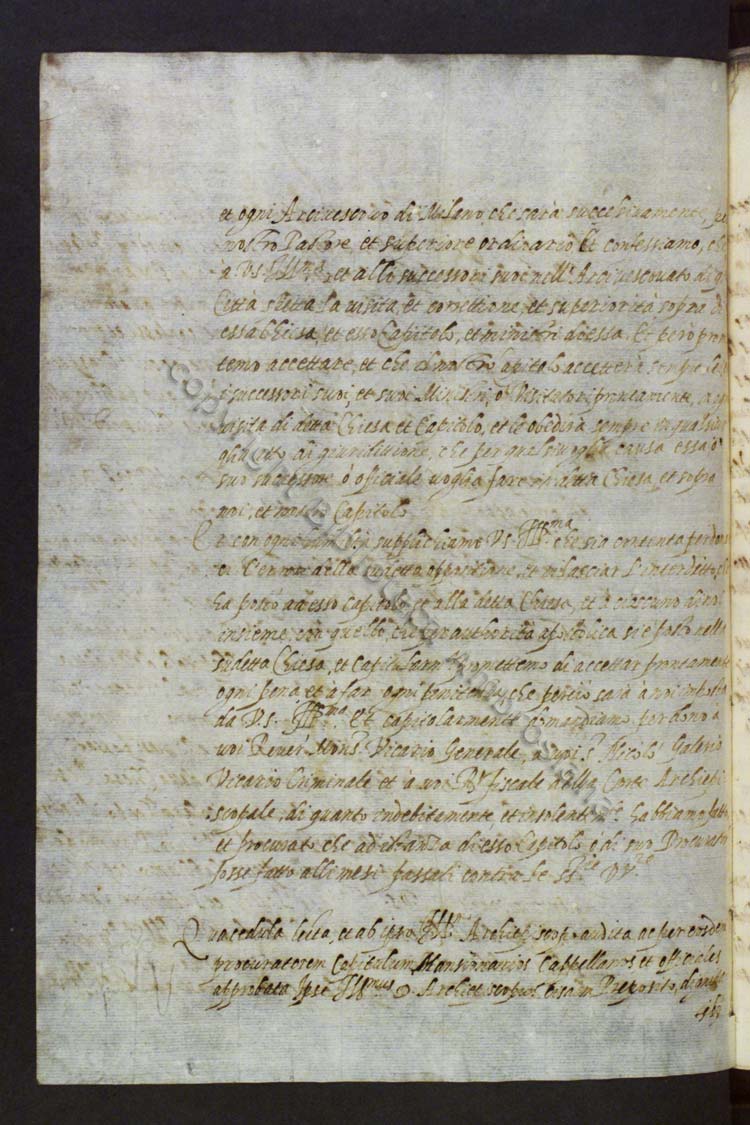 et ogni Arcivescovo di Milano che sarà successivamente, per
nostro Pastore, et superiore ordinario Et confessiamo, che
à V.S. Ill.ma, et alli successori suoi nell' Arcivescovato di q
Città spetta la visita, et correttione, et superiorità sopra d
essa Chiesa, et esso Capitolo, et ministri d'essa. Et però prom
temo accettare, et che il nostro Capitolo accetterà sempre lei
i successori suoi, et suoi Ministri, ò Visitatori prontamente, a
visita di detta Chiesa et Capitolo, et le obedirà sempre in qualsiuo
glia atto di giurisdittione, che per qualsivoglia causa essa ò
suo successore ò officiale voglia fare in detta Chiesa, et sopra
noi, et nostro Capitolo
Et con ogni supplichiamo V.S. Ill.ma che sia contenta perdonar
ci l'errore della sudetta oppositione, et rilasciar l'interdetto, ch
ha posto ad esso Capitolo, et alla detta Chiesa, et à ciascuno di noi
insieme, con quello, che con authorità apostolica si è posto nella
sudetta Chiesa, et Capitularm.te promettemo di accettar prontamente
ogni pena et à far ogni penitenza, che perciò sarà à noi imposta
da V.S. Ill.ma. Et capitolarmente domandiamo perdono à
voi Rever. Mons.r Vicario Generale, a voi S.r Nicolò Galerio
Vicario Criminale et à voi fiscale della Corte Archiepi
scopale, di quanto indebitamente et insolentem.te habbiamo fatto
et procurato che ad istanza di esso Capitolo ò di suo Procurator
fosse fatto alli mesi passati contra le
Qua cedula lecta, et ab ipso Ill.mo D. Archiepiscopo audita ac per eosdem
procuratorem Capitulum Mansionarios Cappellanos et officiales
approbata Ipse Ill.mus D. Archiepiscopus Preposito,